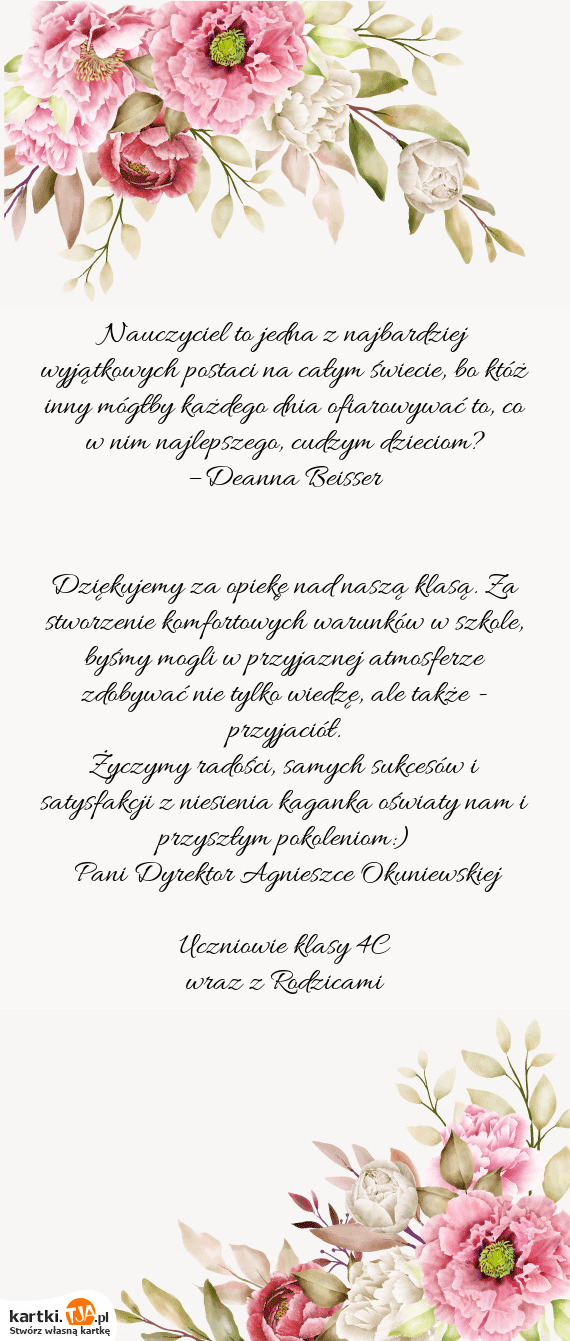 Nauczyciel to jedna z najbardziej
wyjątkowych postaci na całym świecie, bo któż
inny mógłby każdego dnia ofiarowywać to, co
w nim najlepszego, cudzym dzieciom?
– Deanna Beisser
Dziękujemy za opiekę nad naszą klasą. Za
stworzenie komfortowych warunków w szkole,
byśmy mogli w przyjaznej atmosferze
zdobywać nie tylko wiedzę, ale także -
przyjaciół.
Życzymy radości, samych sukcesów i
satysfakcji z niesienia kaganka oświaty nam i
przyszłym pokoleniom:)
Pani Dyrektor Agnieszce Okuniewskiej
Uczniowie klasy 4C
wraz z Rodzicami
kartki.TJA.pl
Stwórz własną kartkę